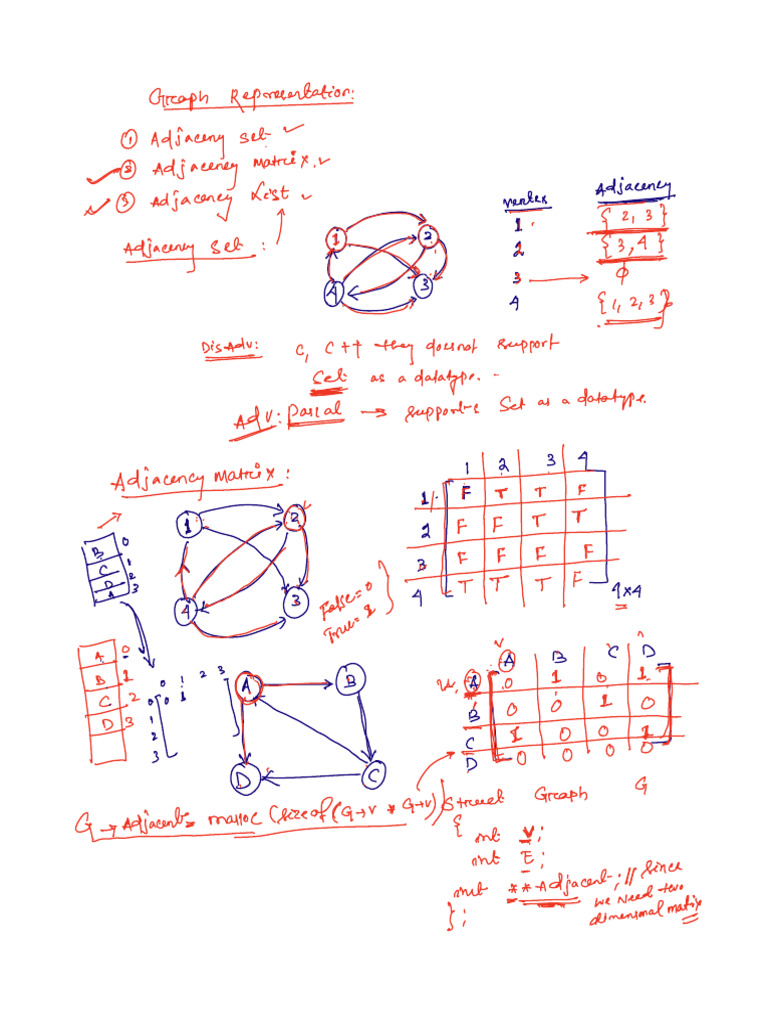 Graph Representation:
① Adjaceny Set
② Adjacency Matrix
③ Adjacency List
Adjacency Set :
1 2
4 3
Vertex Adjacency
1 {2, 3}
2 {3, 4}
3 → ϕ
4 {1, 2, 3}
DisAdv: C, C++ they doesnot support
Set as a datatype.
Adv: Pascal → supports Set as a datatype.
Adjacency Matrix :
B 0
C 1
D 2
A 3
1 2
4 3
False = 0
True = 1
1 2 3 4
1 F T T F
2 F F T T
3 F F F F
4 T T T F
4×4
A 0
B 1
C 2
D 3
0 1 2 3
0 0 1
1
2
3
A B
D C
v
A B C D
u, A 0 1 0 1
B 0 0 1 0
C 1 0 0 1
D 0 0 0 0
G → Adjacent = malloc (sizeof (G→V * G→V)
Struct Graph G
{
int V;
int E;
int **Adjacent; // Since
we need two
dimensional matrix
};